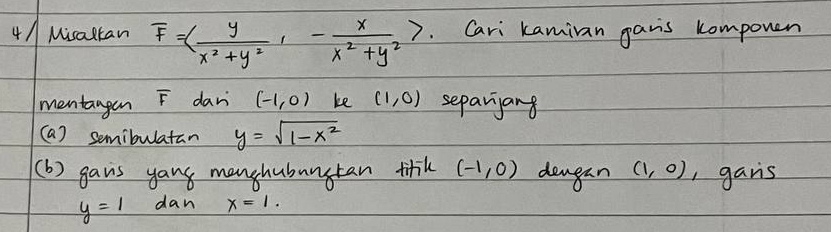 4/ Misalkan F̅ = ⟨ y/(x²+y²) , - x/(x²+y²) ⟩. Cari kamiran garis komponen
mentangen F̅ dari (-1,0) ke (1,0) sepanjang
(a) semibulatan y = √(1-x²)
(b) garis yang menghubungkan titik (-1,0) dengan (1,0), garis
y = 1 dan x = 1.